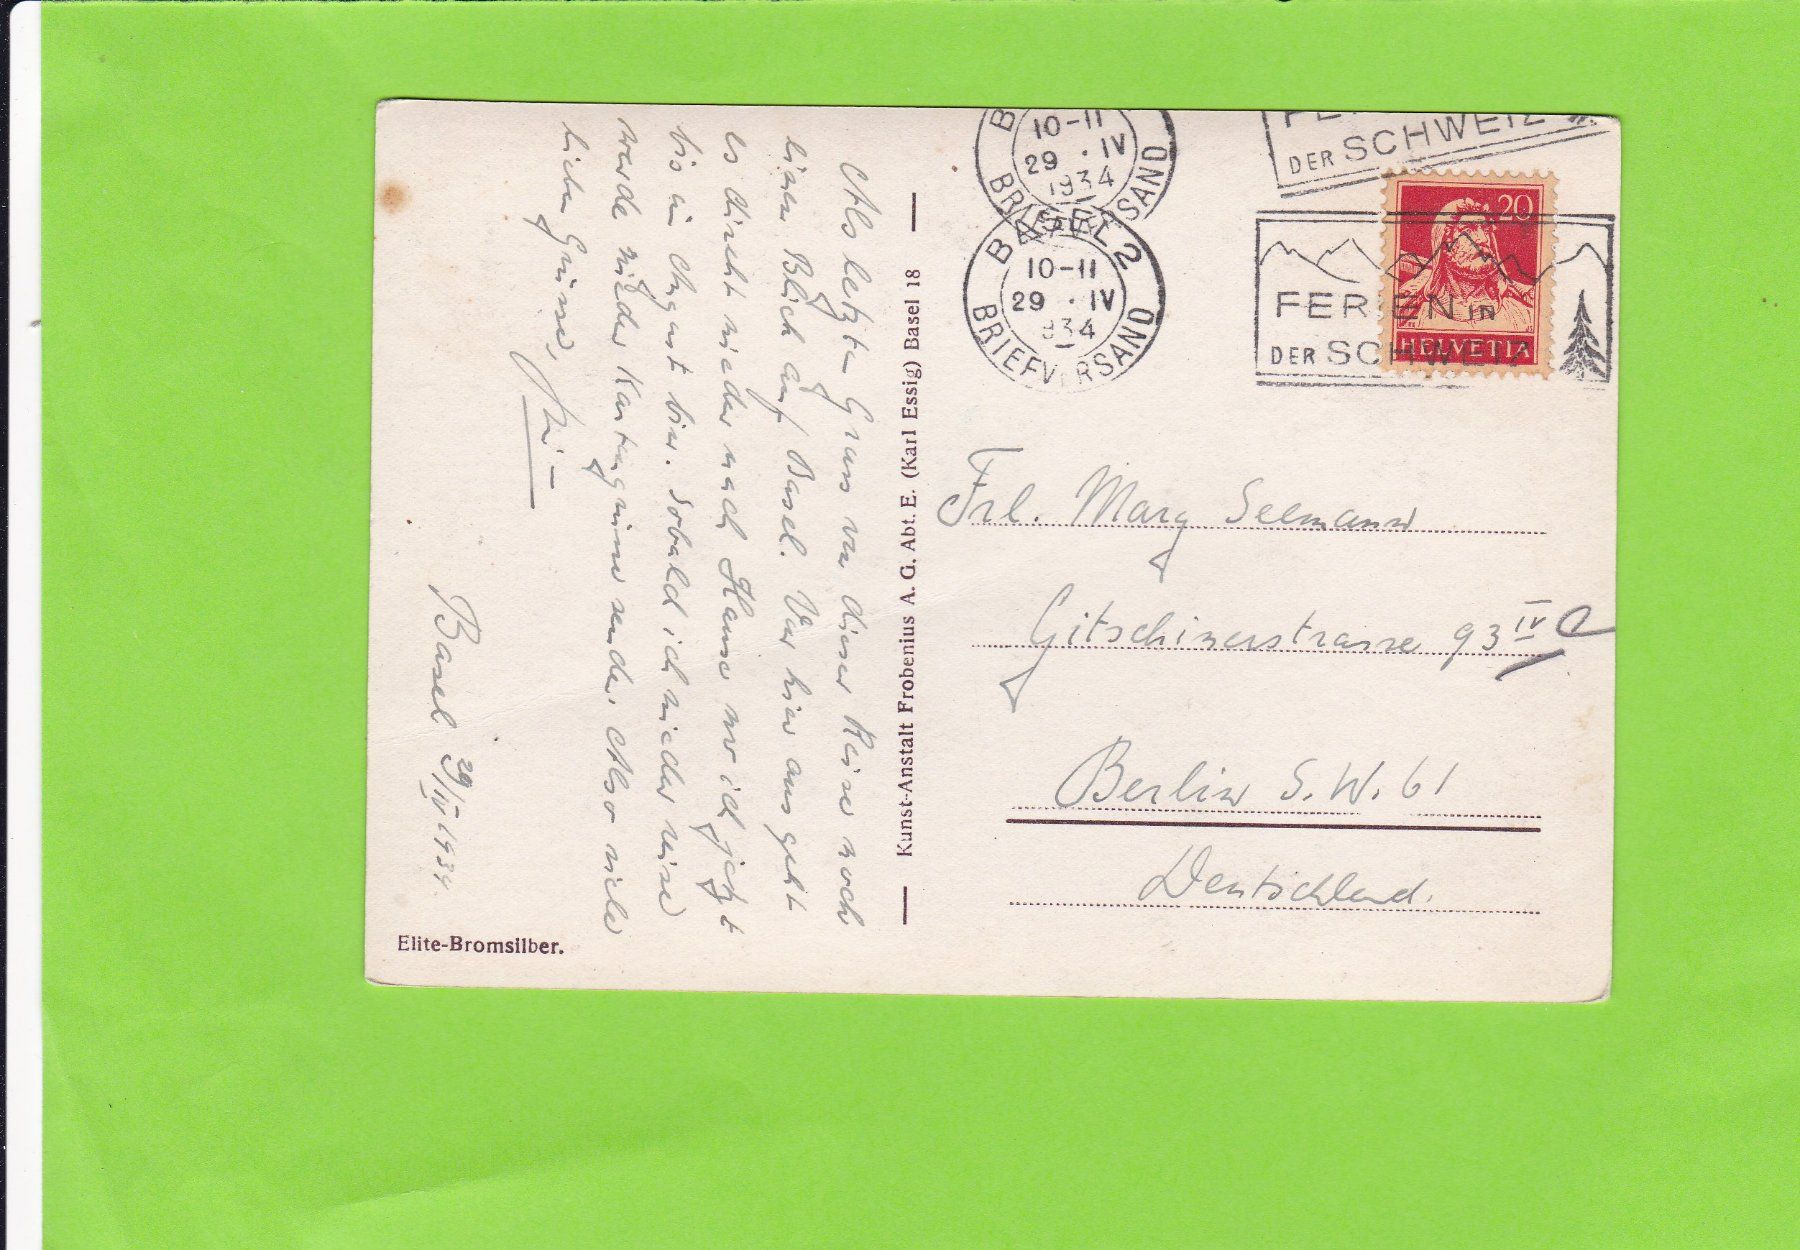 Als letzten Gruss von dieser Reise noch
einen Blick auf Basel. Von hier aus geht
es direkt wieder nach Hause wo ich jetzt
bis im August bin. Sobald ich wieder reise
werde wieder Kartengrüsse senden. Also viele
liebe Grüsse,
Basel 29/IV 1934.
Elite-Bromsilber.
Kunst-Anstalt Frobenius A. G. Abt. E. (Karl Essig) Basel 18
10-11
29 . IV
1934
BRIEFVERSAND
DER SCHWEIZ
BASEL 2
10-11
29 . IV
1934
BRIEFVERSAND
FERIEN IN
DER SCHWEIZ
20
HELVETIA
Frl. Marg Seemann
Gitschinerstrasse 93 IV
Berlin S.W. 61
Deutschland.